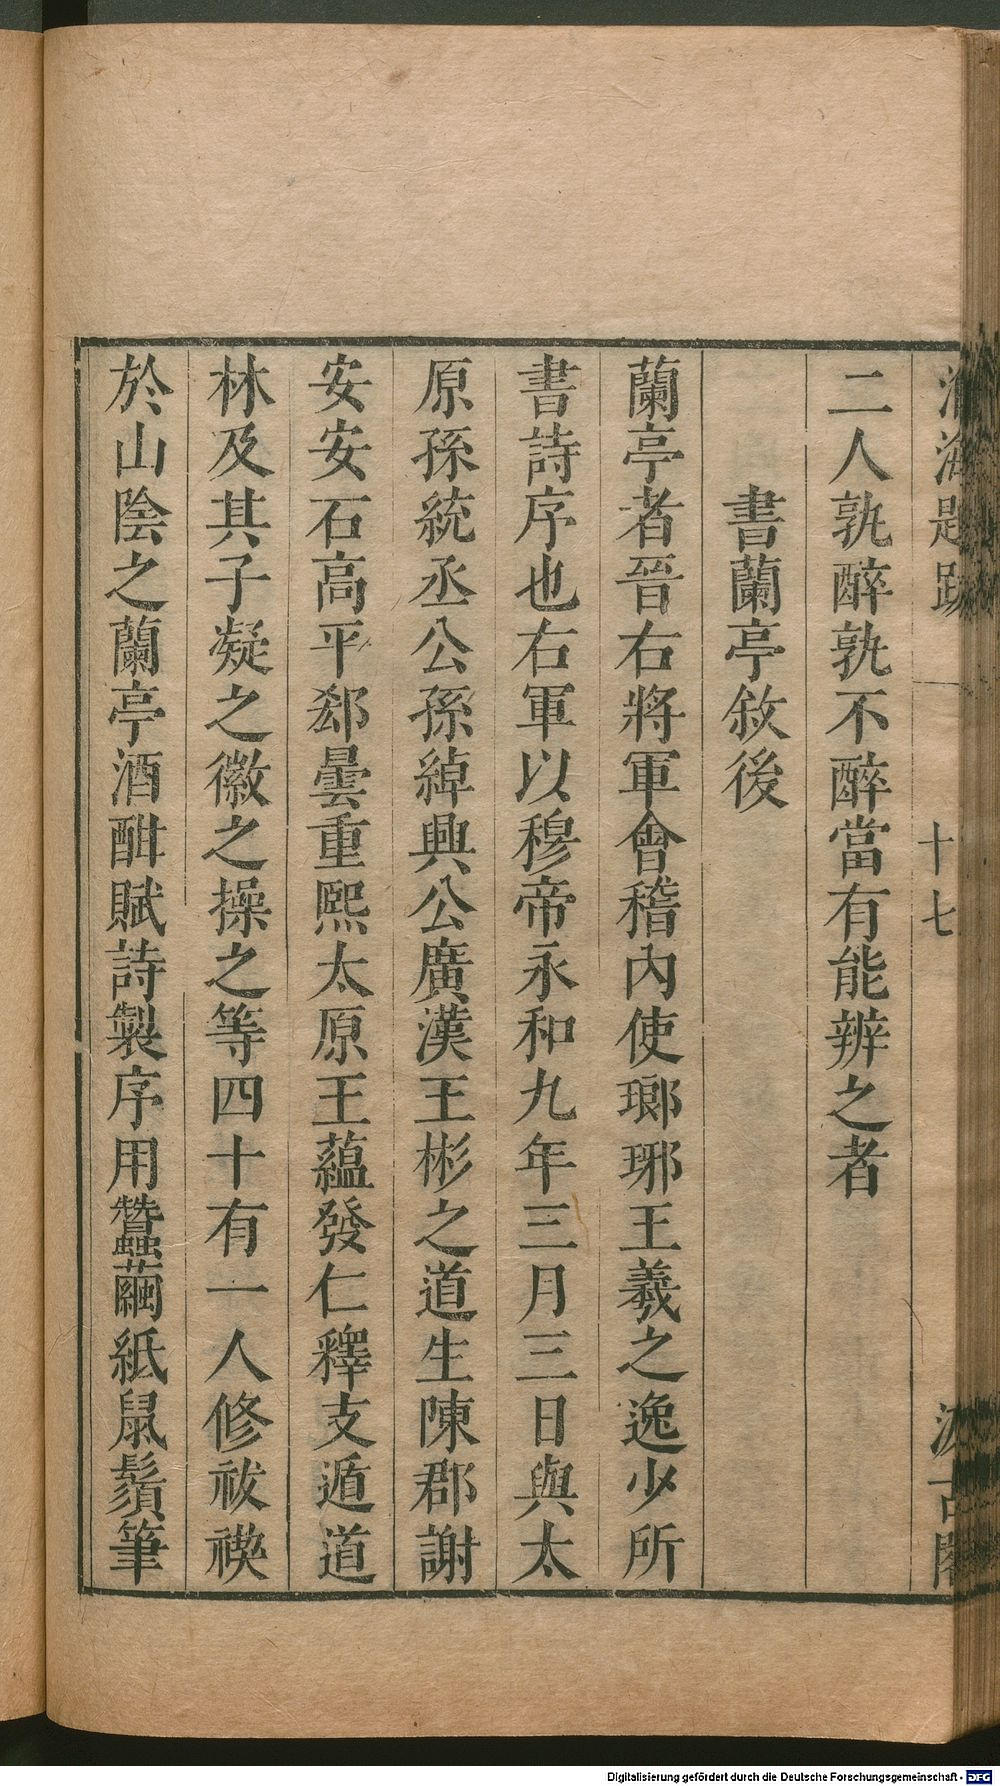 海題跋 十七 汲古閣
二人孰醉孰不醉當有能辨之者
書蘭亭敘後
蘭亭者晉右將軍會稽內使瑯琊王羲之逸少所
書詩序也右軍以穆帝永和九年三月三日與太
原孫統丞公孫綽興公廣漢王彬之道生陳郡謝
安安石高平郄曇重熙太原王蘊發仁釋支遁道
林及其子凝之徽之操之等四十有一人修祓禊
於山陰之蘭亭酒酣賦詩製序用蠶繭紙鼠鬚筆
Digitalisierung gefördert durch die Deutsche Forschungsgemeinschaft - DFG